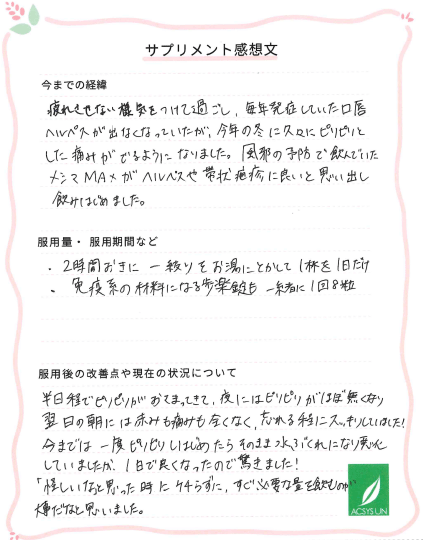 サプリメント感想文
今までの経緯
疲れさせない様気をつけて過ごし、毎年発症していた口唇
ヘルペスが出なくなっていたが、今年の冬に久々にピリピリと
した痛みがでるようになりました。風邪の予防で飲んでいた
メシマMAXがヘルペスや帯状疱疹に良いと思い出し
飲みはじめました。
服用量・服用期間など
・2時間おきに 一絞りをお湯にとかして1杯を1日だけ
・免疫系の材料になる 錠も 一緒に1回8粒
服用後の改善点や現在の状況について
半日程でピリピリがおさまってきて、夜にはピリピリがほぼ無くなり
翌日の朝には赤みも痛みも全くなく、忘れる程にスッキリしていました!
今までは一度ピリピリしはじめたらそのまま水ぶくれになり悪化
していましたが、1日で良くなったので驚きました!
「怪しいなと思った時にケチらずに、すぐ必要な量を飲むのが
大事だなと思いました。
ACSYS UN